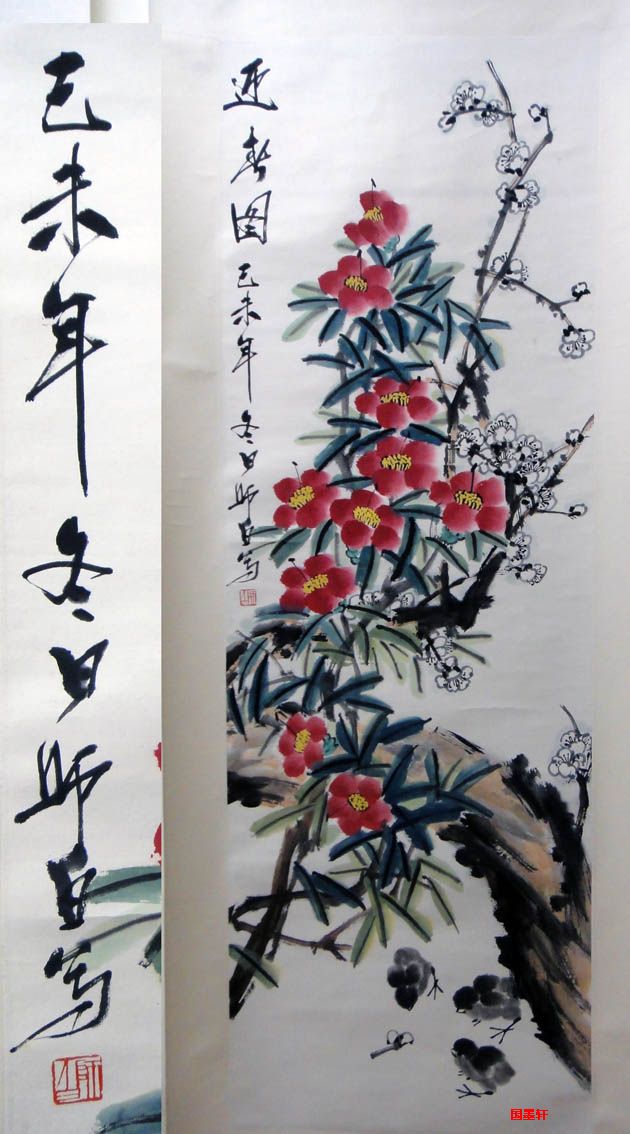 己未年冬日师白写
迎春图 己未年冬日师白写
国墨轩